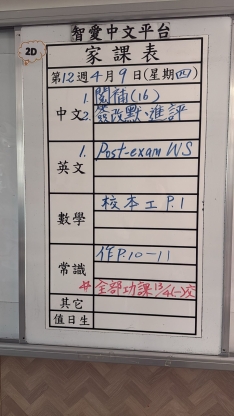 2D
智愛中文平台
家課表
第12週4月9日(星期四)
中文
1. 閱補(16)
2. 簽改默、進評
英文
1. Post-exam WS
數學
校本工 P.1
常識
作P.10-11
# 全部功課13/4(一)交
其它
值日生